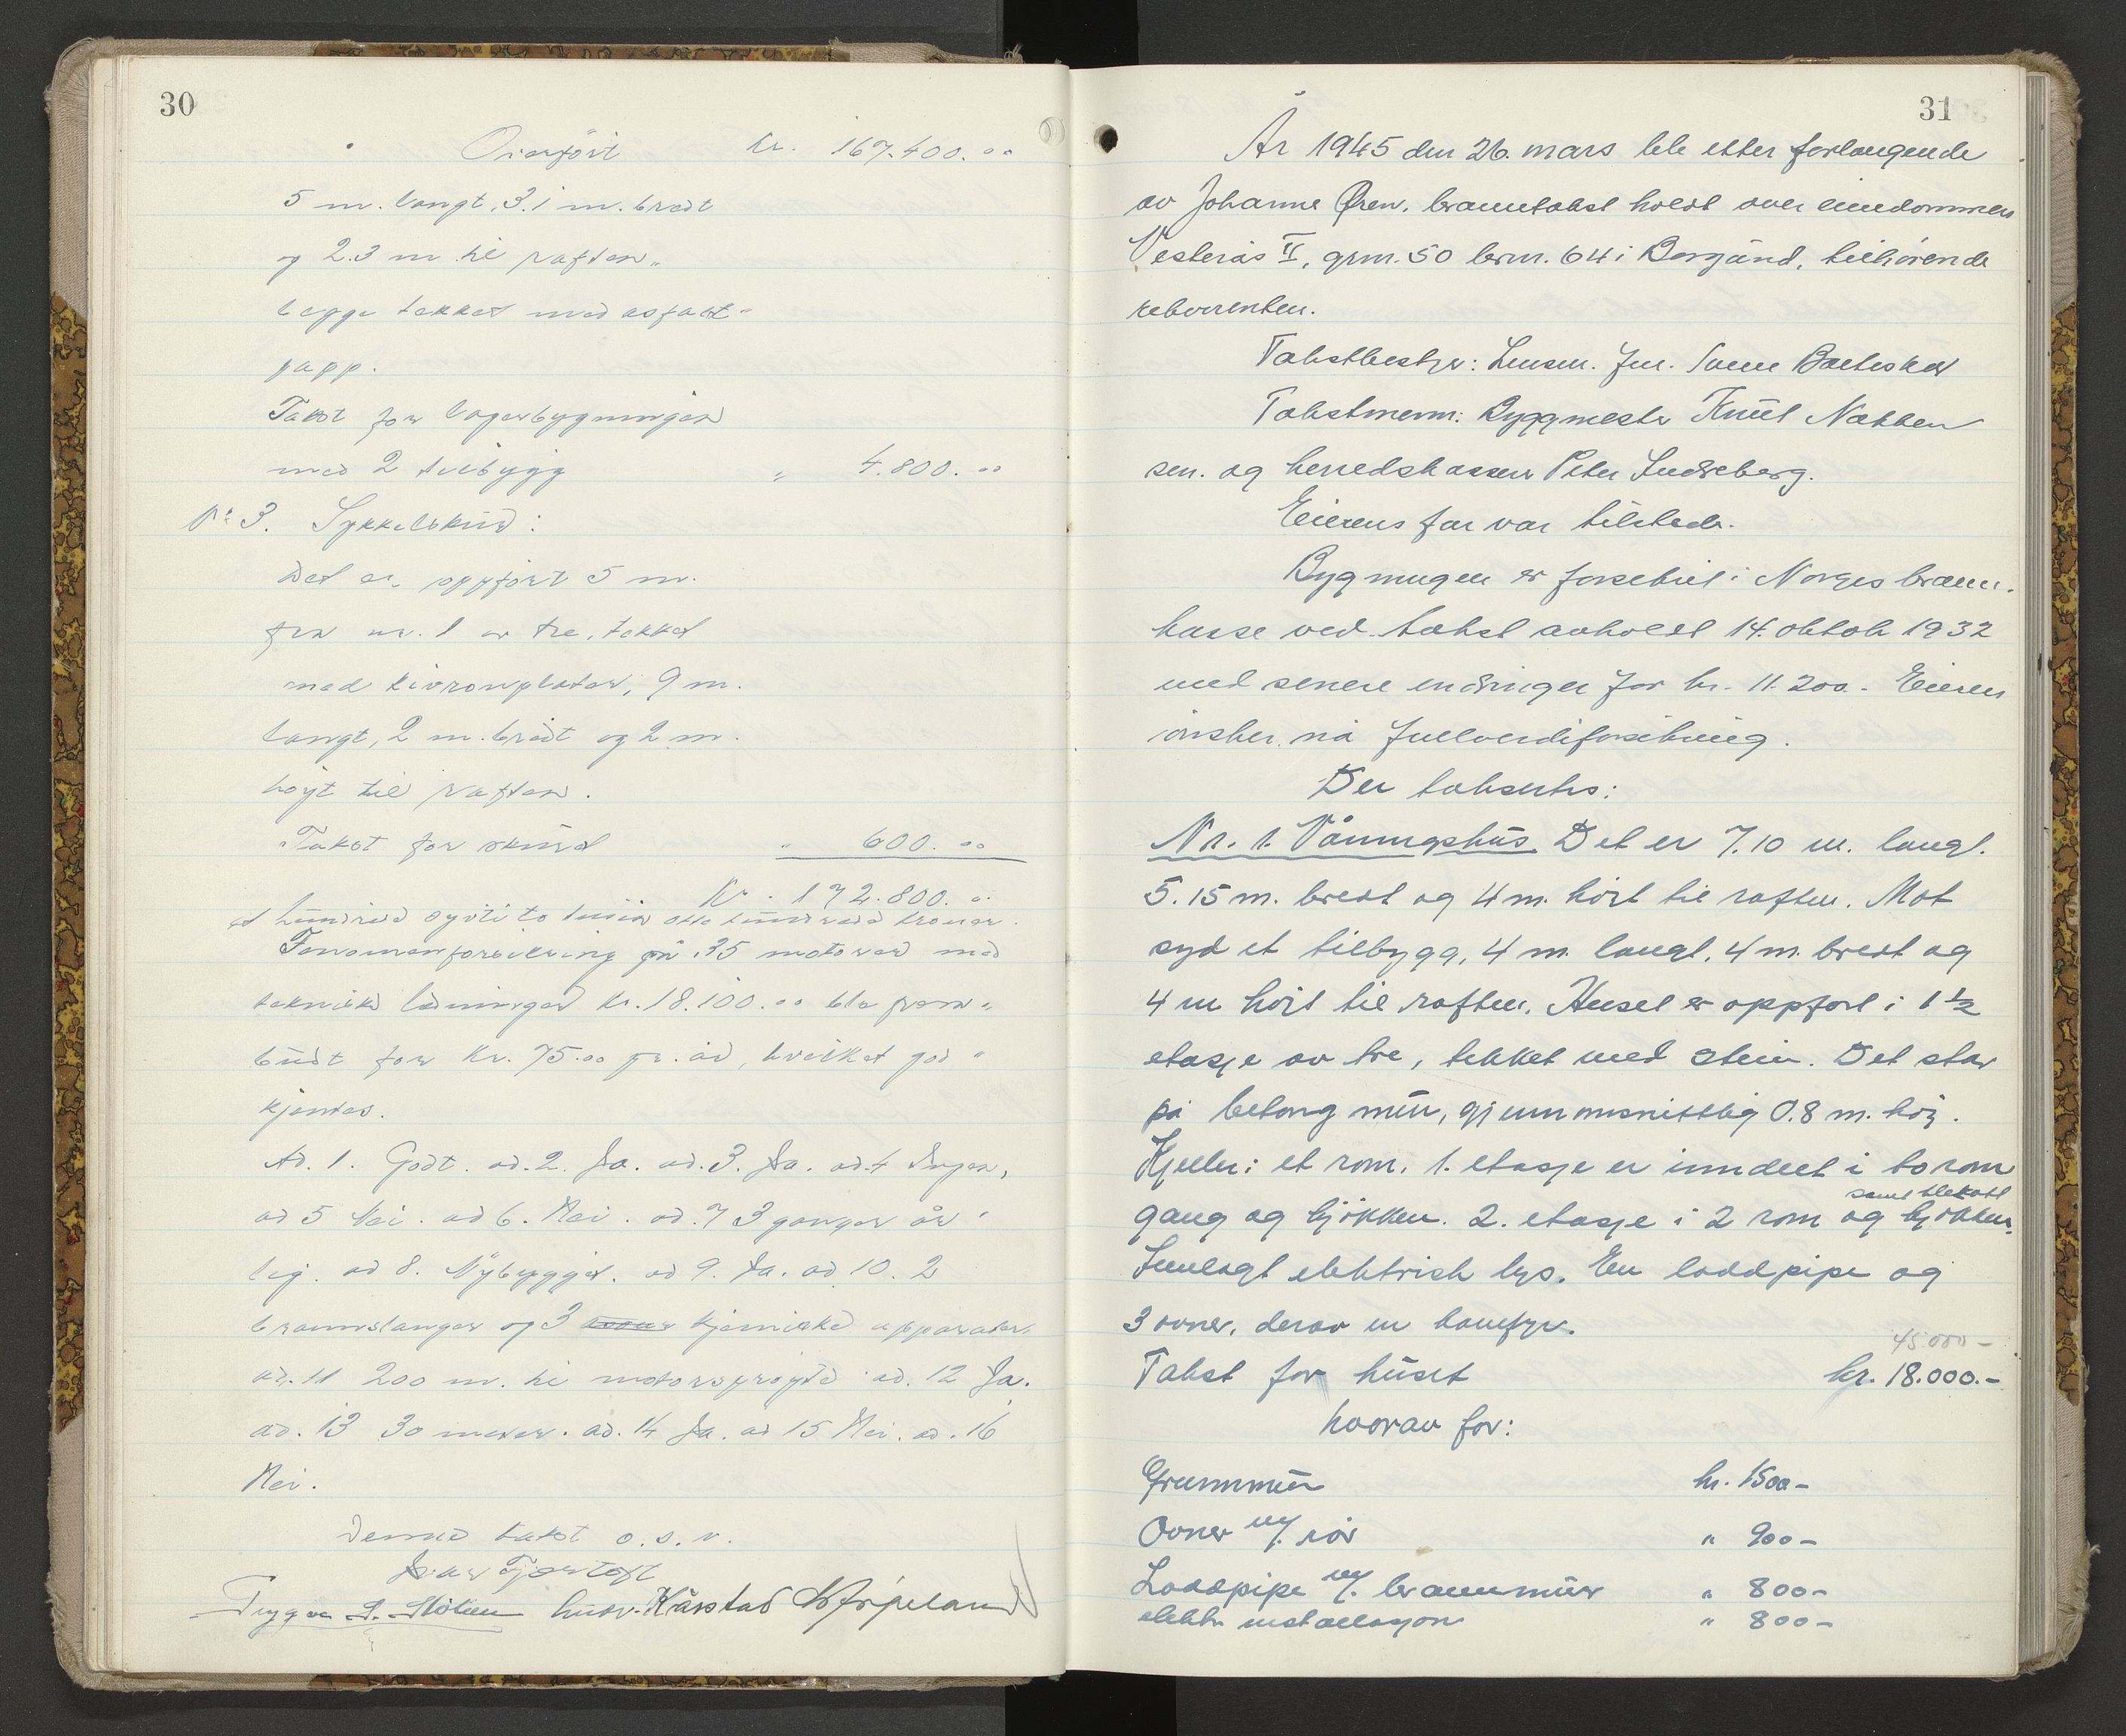 30
Overført kr. 167.400.00
5 m. langt, 3.1 m. bredt
og 2.3 m til raften.
begge tekket med asfalt-
papp.
Takst for lagerbygningen
med 2 tilbygg " 4.800.00
Nr 3. Sykkelskur:
Det er oppført 5 m.
fra nr. 1 av tre, tekket
med eivronplater, 9 m.
langt, 2 m. bredt og 2 m.
høyt til raften.
Takst for skuret " 600.00
Kr. 172.800.00
et hundred sytti to tusen otte hundred kroner.
Fenomenforsikring på 35 motorer med
tekniske ledninger kr. 18.100.00 ble frem-
budt for kr. 75.00 pr. år, hvilket god-
kjentes.
Ad. 1. Godt. ad. 2. Ja. ad. 3. Ja. ad. 4 Ingen,
ad 5 Nei. ad 6. Nei. ad. 7 3 ganger år-
lig. ad 8. Nybygget. ad 9. Ja. ad. 10. 2
brannslanger og 3 kjemiske apparater.
ad. 11 200 m. til motorsprøyte ad. 12 Ja.
ad. 13 30 meter. ad. 14 Ja. ad 15 Nei. ad. 16
Nei.
Denne takst o.s.v.
Ivar Tjørtoft
Trygve Kårstad
31
År 1945 den 26. mars ble etter forlangende
av Johanne Øren, branntakst holdt over eiendommen
Vesterås II, grnr. 50 brnr. 64 i Borgund, tilhørende
rekvirenten.
Takstbestyr: Lensm. fm.
Takstmenn: Byggmester Knut Nakken
sen. og herredskasserer Peter Indreberg.
Eierens far var tilstede.
Bygningen er forsikret i Norges brann-
kasse ved takst avholdt 14. oktob 1932
med senere endringer for kr. 11.200.- Eieren
ønsker nå fullverdiforsikring.
Der taksertes:
Nr. 1. Våningshus Det er 7.10 m. langt.
5.15 m. bredt og 4 m. høit til raften. Mot
syd et tilbygg, 4 m. langt, 4 m. bredt og
4 m høit til raften. Huset er oppført i 1 1/2
etasje av tre, tekket med stein. Det står
på betong mur, gjennomsnittlig 0.8 m. høi.
Kjeller: et rom. 1. etasje er inndelt i to rom
samt klekott
gang og kjøkken. 2. etasje i 2 rom og kjøkken.
Innlagt elektrisk lys. En loddpipe og
3 ovner, derav en komfyr.
45.000-
Takst for huset kr. 18.000.-
hvorav for:
Grunnmur kr. 1500-
Ovner m/. rør " 900-
Loddpipe m/. brannmur " 800-
elektr installasjon " 800-